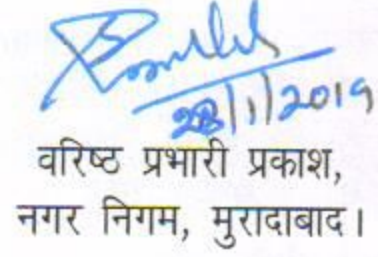 28/1/2019
वरिष्ठ प्रभारी प्रकाश,
नगर निगम, मुरादाबाद।